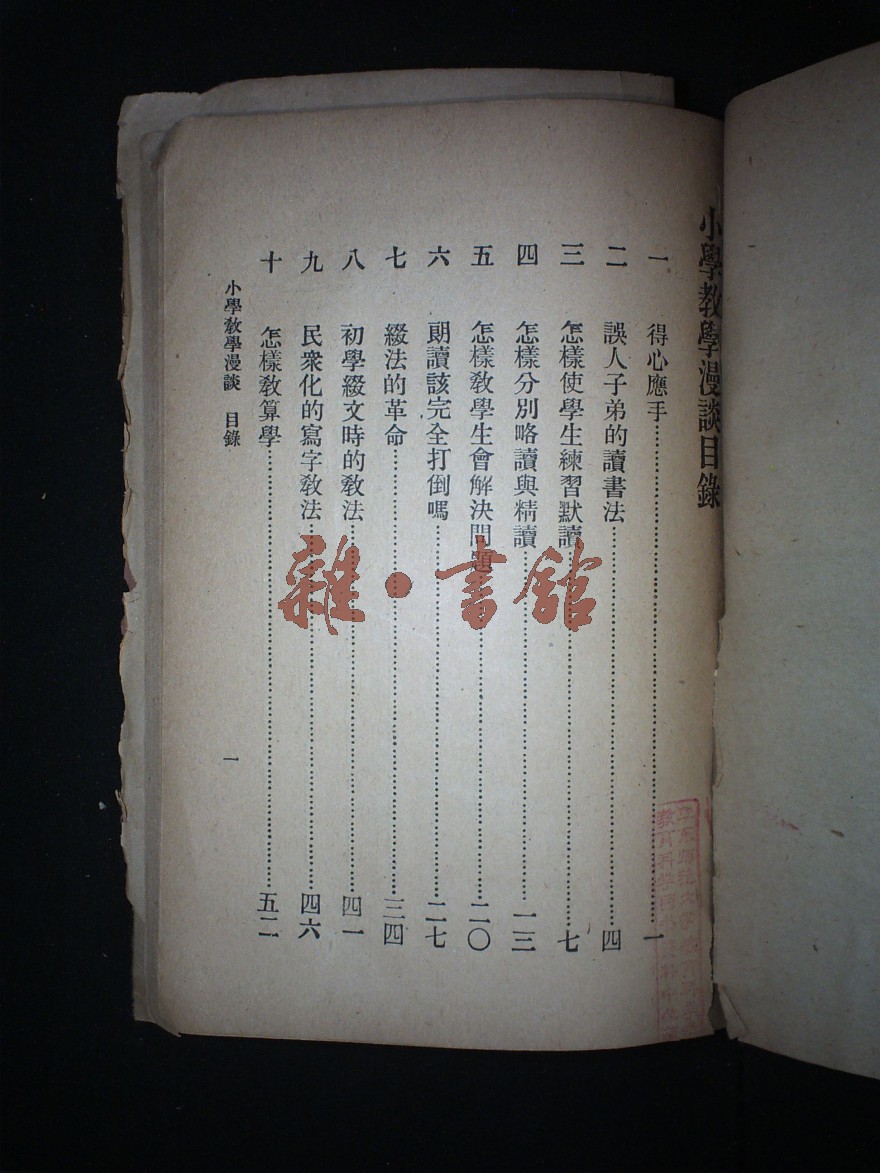 小學教學漫談目錄
一 得心應手……一
二 誤人子弟的讀書法……四
三 怎樣使學生練習默讀……七
四 怎樣分別略讀與精讀……一三
五 怎樣教學生會解決問題……二〇
六 朗讀該完全打倒嗎……二七
七 綴法的革命……三四
八 初學綴文時的教法……四一
九 民衆化的寫字教法……四六
十 怎樣教算學……五二
小學教學漫談 目錄 一
雜·書館